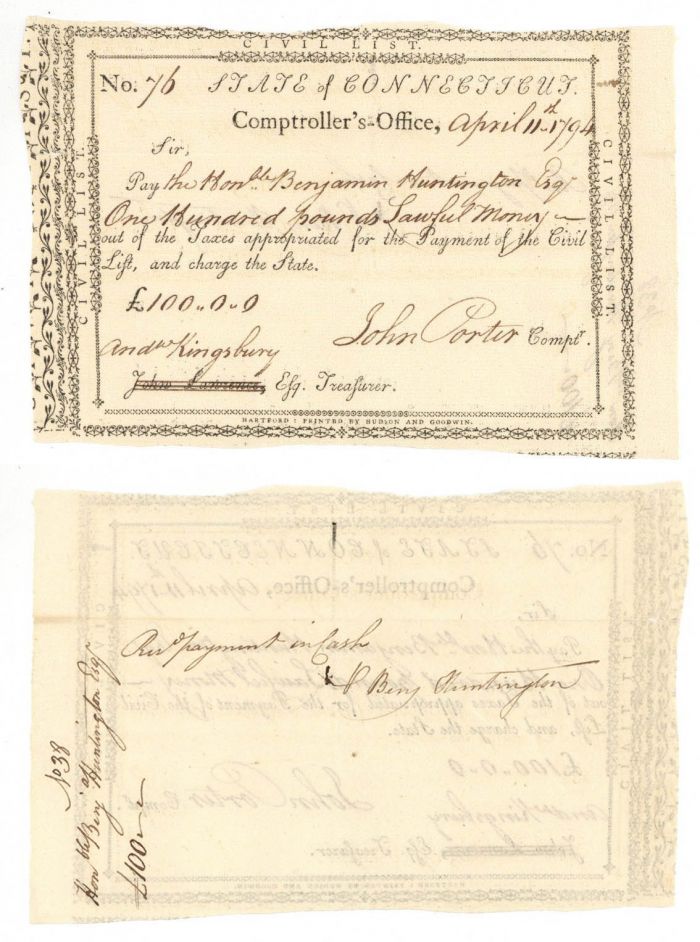 CIVIL LIST.
No. 76 STATE of CONNECTICUT.
Comptroller's-Office, April 11th 1794
Sir,
Pay the Honble Benjamin Huntington Esqr
One Hundred pounds Lawful Money —
out of the Taxes appropriated for the Payment of the Civil
List, and charge the State.
£100..0..0
John Porter Comptr.
Andw Kingsbury
John Lawrence, Esq. Treasurer.
HARTFORD: PRINTED BY HUDSON AND GOODWIN.
CIVIL LIST.
CIVIL LIST.
Recd payment in Cash
Benj Huntington
No 38
Honble Benj Huntington Esqr
£100